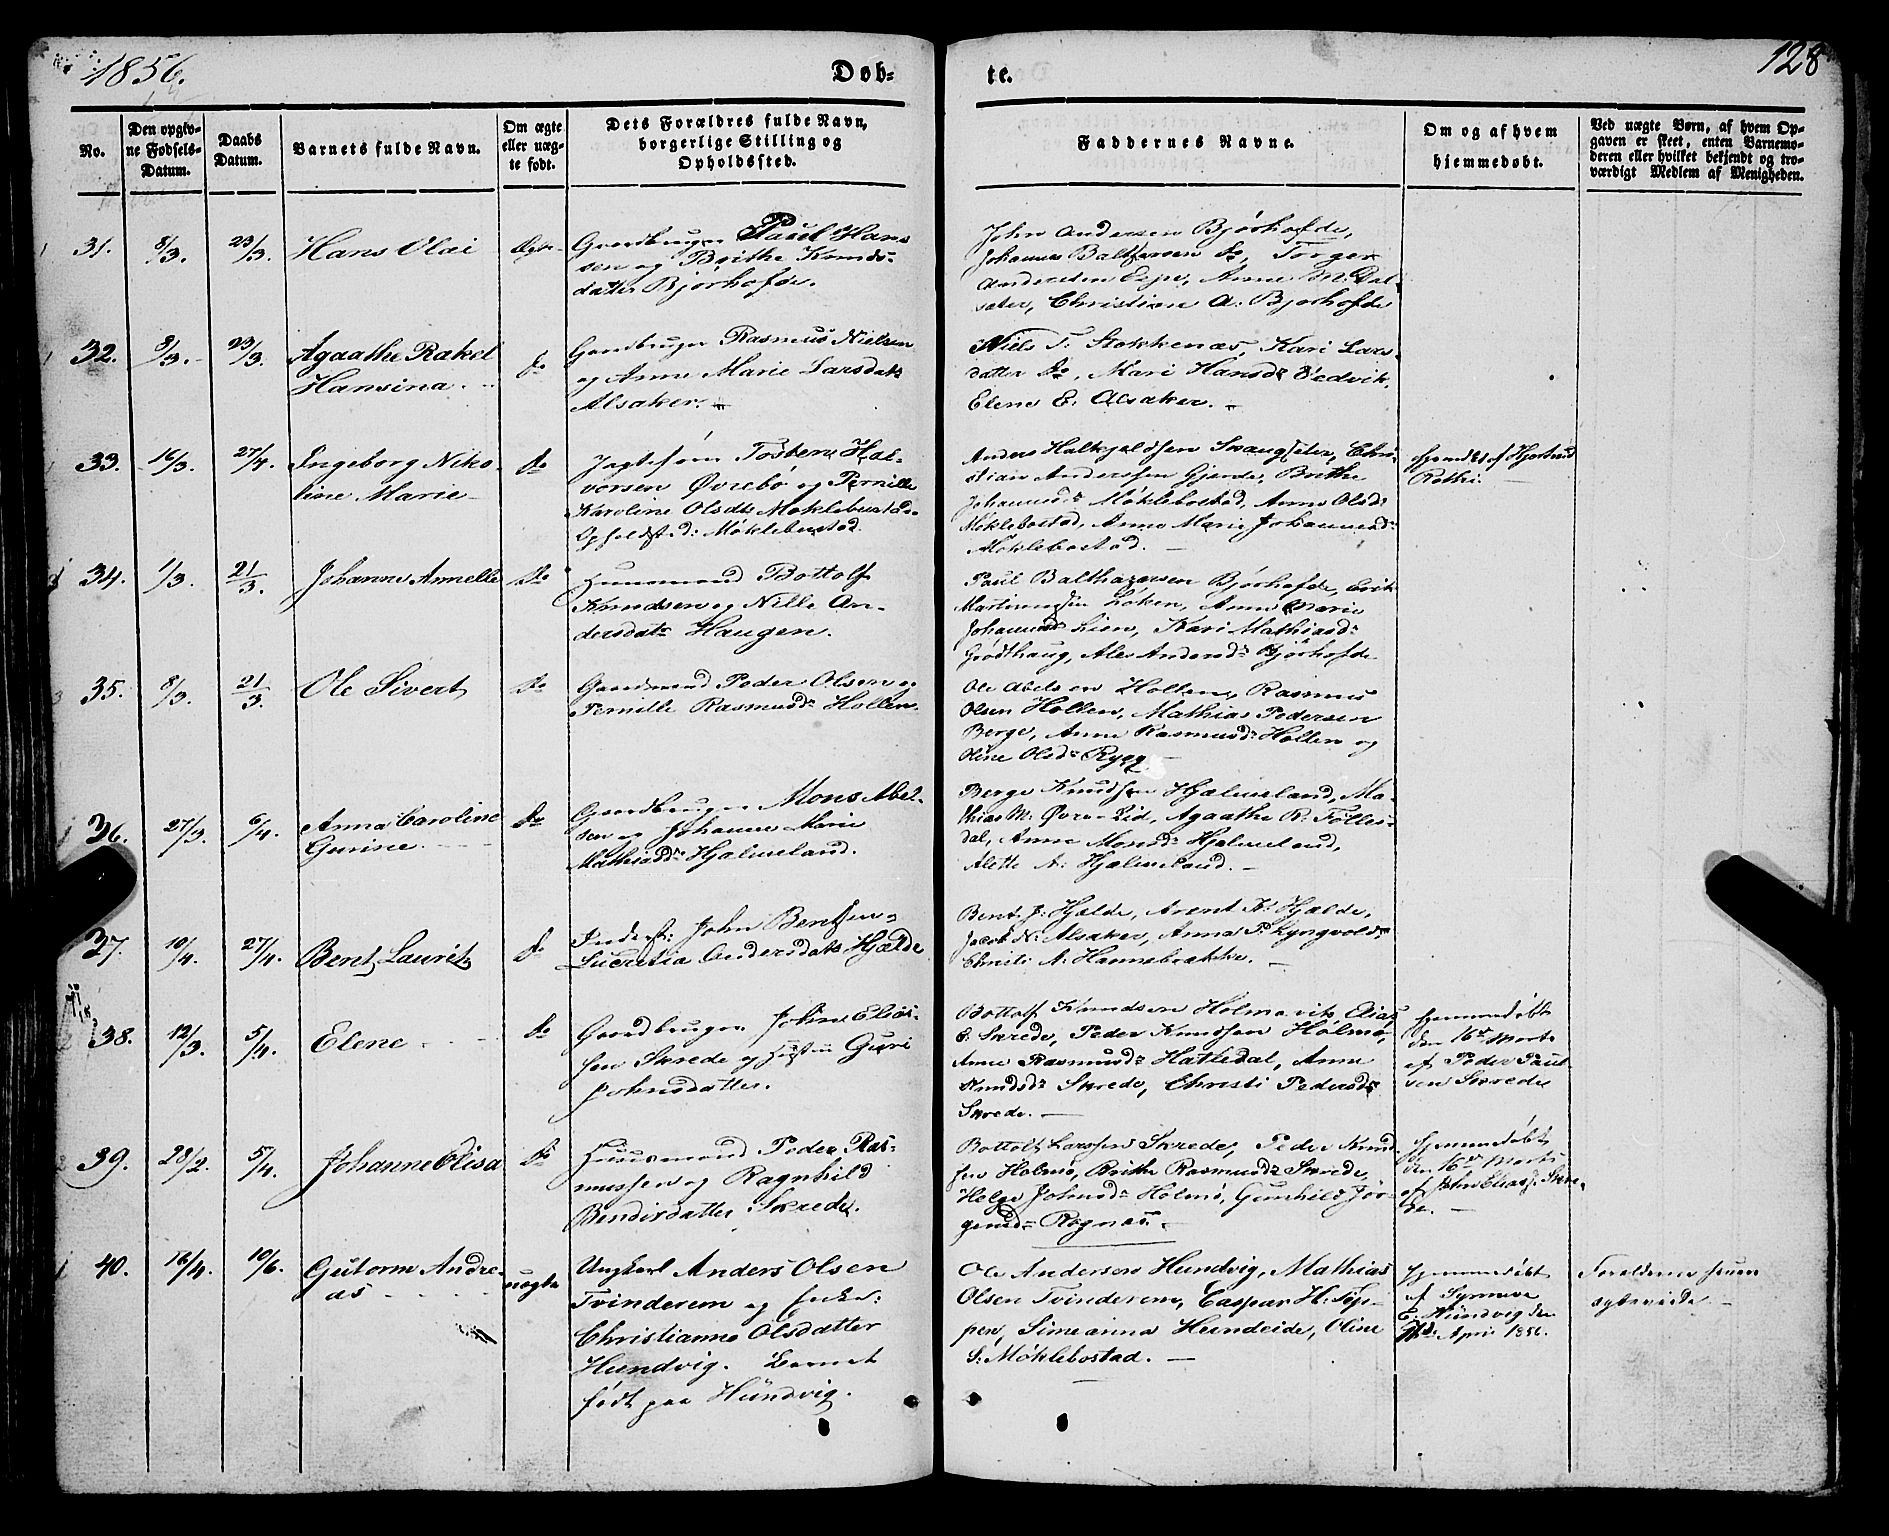 1856.
Dob-
te.
128
No.
Den opgiv-
ne Fødsels-
Datum.
Daabs
Datum.
Barnets fulde Navn.
Om ægte
eller uæg-
te født.
Dets Forældres fulde Navn,
borgerlige Stilling og
Opholdssted.
Faddernes Navne.
Om og af hvem
hjemmedøbt.
Ved uægte Børn, af hvem Op-
gaven er skeet, enten Barnemo-
deren eller hvilket bekjendt og tro-
værdigt Medlem af Menigheden.
31.
8/3.
23/3.
Hans Olai
Ægte
Gaardbruger Paul Han-
sen og Brithe Knuds-
datter Bjørhofde.
John Andersen Bjørhofde,
Johannes Balthersen do, Torger
Andersen Espe, Anne M. Dal-
sæter, Christian A. Bjørhofde
32.
9/3.
23/3.
Agaathe Rakel
Hansina.
do
Gaardbruger Rasmus Nielsen
og Anne Marie Larsdatr
Alsaker.
Niels T. Stokkenæs, Kari Lars-
datter do, Mari Hansdr Vedvik,
Elene E. Alsaker.
33.
16/3.
27/4.
Ingeborg Niko-
line Marie
do
Torsten Hal-
vorsen Øvrebø og Pernille
Karoline Olsdtr Møklebustad.
Opholdssted: Møklebustad.
Anders Halkjeldsen Svangsæter, Chri-
stian Andersen Gjerde, Brithe
Johannesdr Møklebostad, Anne Olsdr
Møklebostad, Anne Marie Johannesdr
Møklebostad.
34.
1/3.
21/3.
Johanne Annelle
do
Huusmand Bottolf
Knudsen og Nille An-
dersdatr Haugen.
Paul Balthazersen Bjørhofde, Erik
Martinussen Løken, Anne Marie
Johannesdr Lien, Kari Mathiasdr
Grodthaug, Ales Andersdr Bjørhofde
35.
8/3.
21/3.
Ole Sivert
do
Gaardmand Peder Olsen og
Pernille Rasmusdr Hollen.
Ole Abelsen Hollen, Rasmus
Olsen Hollen, Mathias Pedersen
Berge, Anne Rasmusdr Hollen og
Oline Olsdr Rygg.
36.
27/3.
6/4.
Anna Caroline
Gurine.
do
Gaardbruger Mons Abel-
sen og Johanne Marie
Mathiasdr Hjalmeland.
Berge Knudsen Hjælmeland, Ma-
thias M. Øvre-Eid, Agaathe R. Følles-
dal, Anne Monsdr Hjelmeland,
Alette A. Hjælmeland.
37.
10/4.
27/4.
Bent Laurits
do
Inderst: John Bentsen og
Lucretia Andersdatr Hjelde
Bent J. Hjelde, Arent K. Hjelde,
Jacob N. Alsaker, Anna P. Lyngvold,
Christi A. Hannebrække.
38.
12/3.
5/4.
Elene
do
Gaardbruger John Elias-
sen Skrede og Hustru Guri
Johnsdatter.
Bottolf Knudsen Holmevik, Elias
E. Skrede, Peder Knudsen Holmø,
Anne Rasmusdr Hatledal, Anne
Knudsdr Skrede, Christi Pedersdr
Skrede.
Hjemmedøbt
den 16de Marts
af Peder Paul-
sen Skrede
39.
28/2.
5/4.
Johanne Elisa
do
Huusmand Peder Ras-
mussen og Ragnhild
Bendixdatter Skrede.
Bottolf Larssen Skrede, Peder Knud-
sen Holmø, Brithe Rasmusdr Skrede,
Helge Johnsdr Holmø, Gunhild Jør-
gensdr Rognæs.
Hjemmedøbt
den 16de Marts
af John Eliass. Skre-
de.
40.
16/4.
10/6.
Gutorm Andre-
as
uægte
Ungkarl Anders Olsen
Tvinderem og Enke:
Christianne Olsdatter
Hundvig. Barnet
født paa Hundvig.
Ole Andersen Hundvig, Mathias
Olsen Tvinderem, Caspar H. Yp-
pen, Simeanna Hundeide, Oline
S. Møklebostad.
Hjemmedøbt
af Synneve
E. Hundvig den
April 1856.
Forældrene